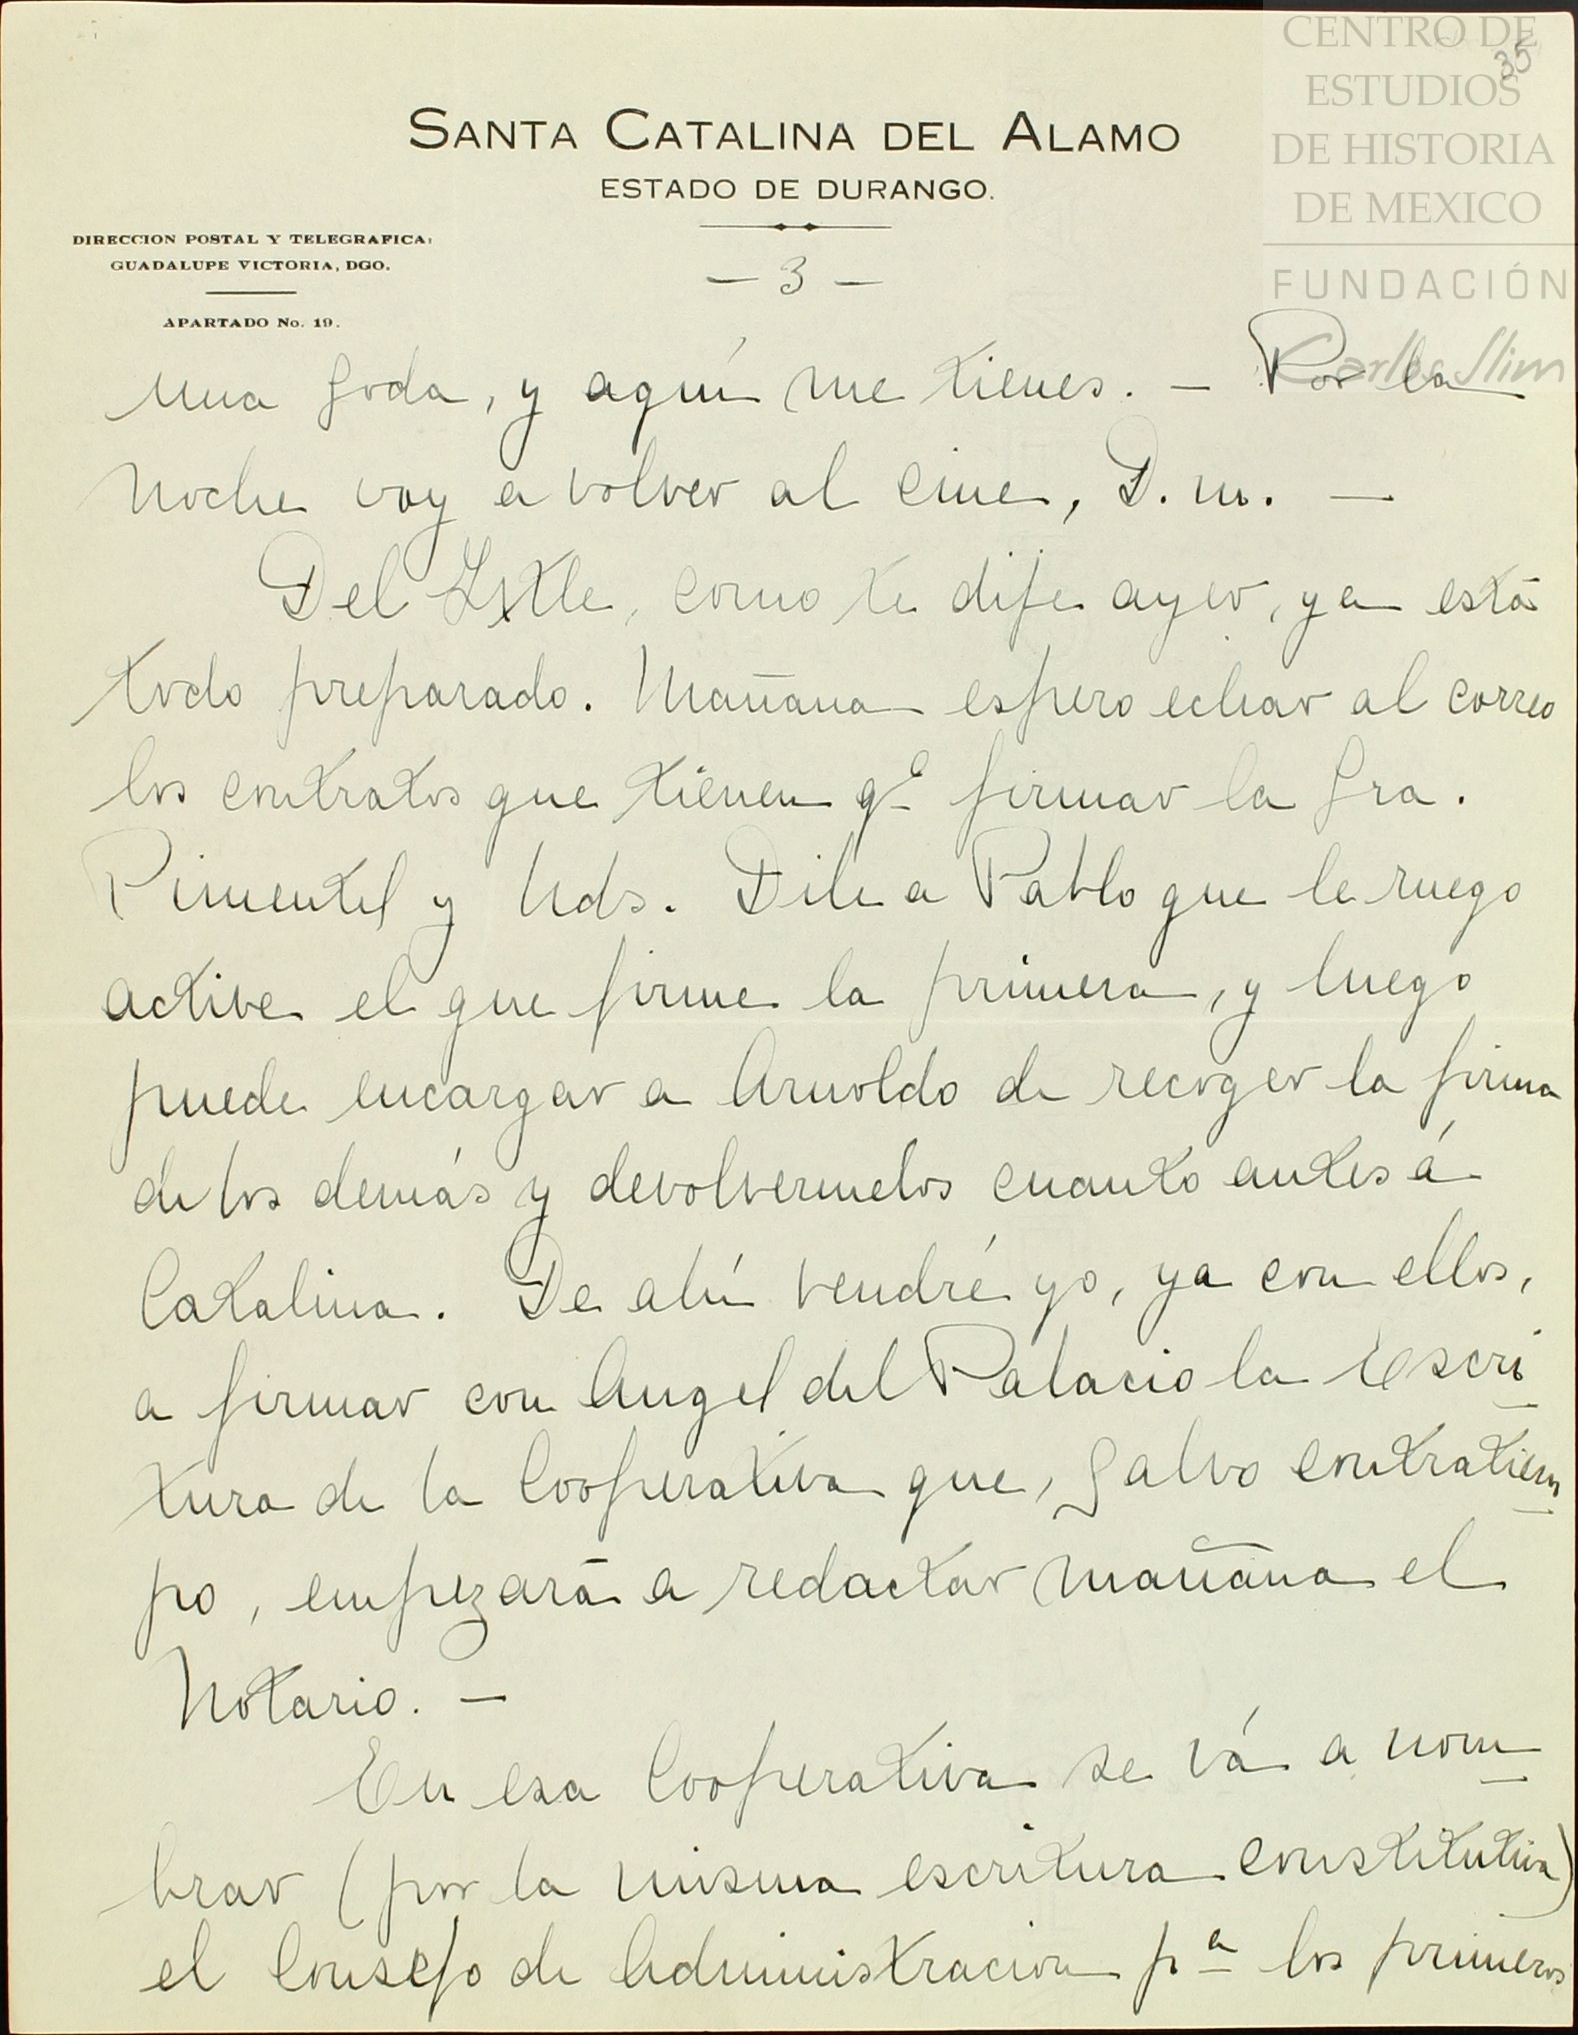 CENTRO DE
ESTUDIOS
DE HISTORIA
DE MEXICO
FUNDACIÓN
Carlos Slim
35
SANTA CATALINA DEL ALAMO
ESTADO DE DURANGO.
DIRECCION POSTAL Y TELEGRAFICA:
GUADALUPE VICTORIA, DGO.
APARTADO No. 19.
— 3 —
una soda, y aquí me tienes. — Por la
noche voy a volver al cine, D. m. —
Del Ixtle, como te dije ayer, ya está
todo preparado. Mañana espero echar al correo
los contratos que tienen qᵉ firmar la Sra.
Pimentel y Uds. Dile a Pablo que le ruego
active el que firme la primera, y luego
puede encargar a Arnoldo de recoger la firma
de los demás y devolvermelos cuanto antes á
Catalina. De ahí vendré yo, ya con ellos,
a firmar con Angel del Palacio la Escri
tura de la Cooperativa que, salvo contratiem
po, empezará a redactar mañana el
Notario. —
En esa Cooperativa se vá a nom
brar (por la misma escritura constitutiva)
el Consejo de Administracion pᵃ los primeros